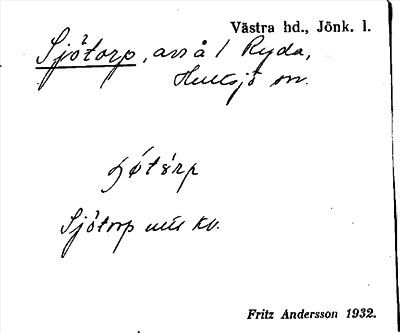 Västra hd., Jönk. l.
Sjötorp, avs å 1 Ryda,
Hultsjö sn.
Sjötorp utt kv.
Fritz Andersson 1932.